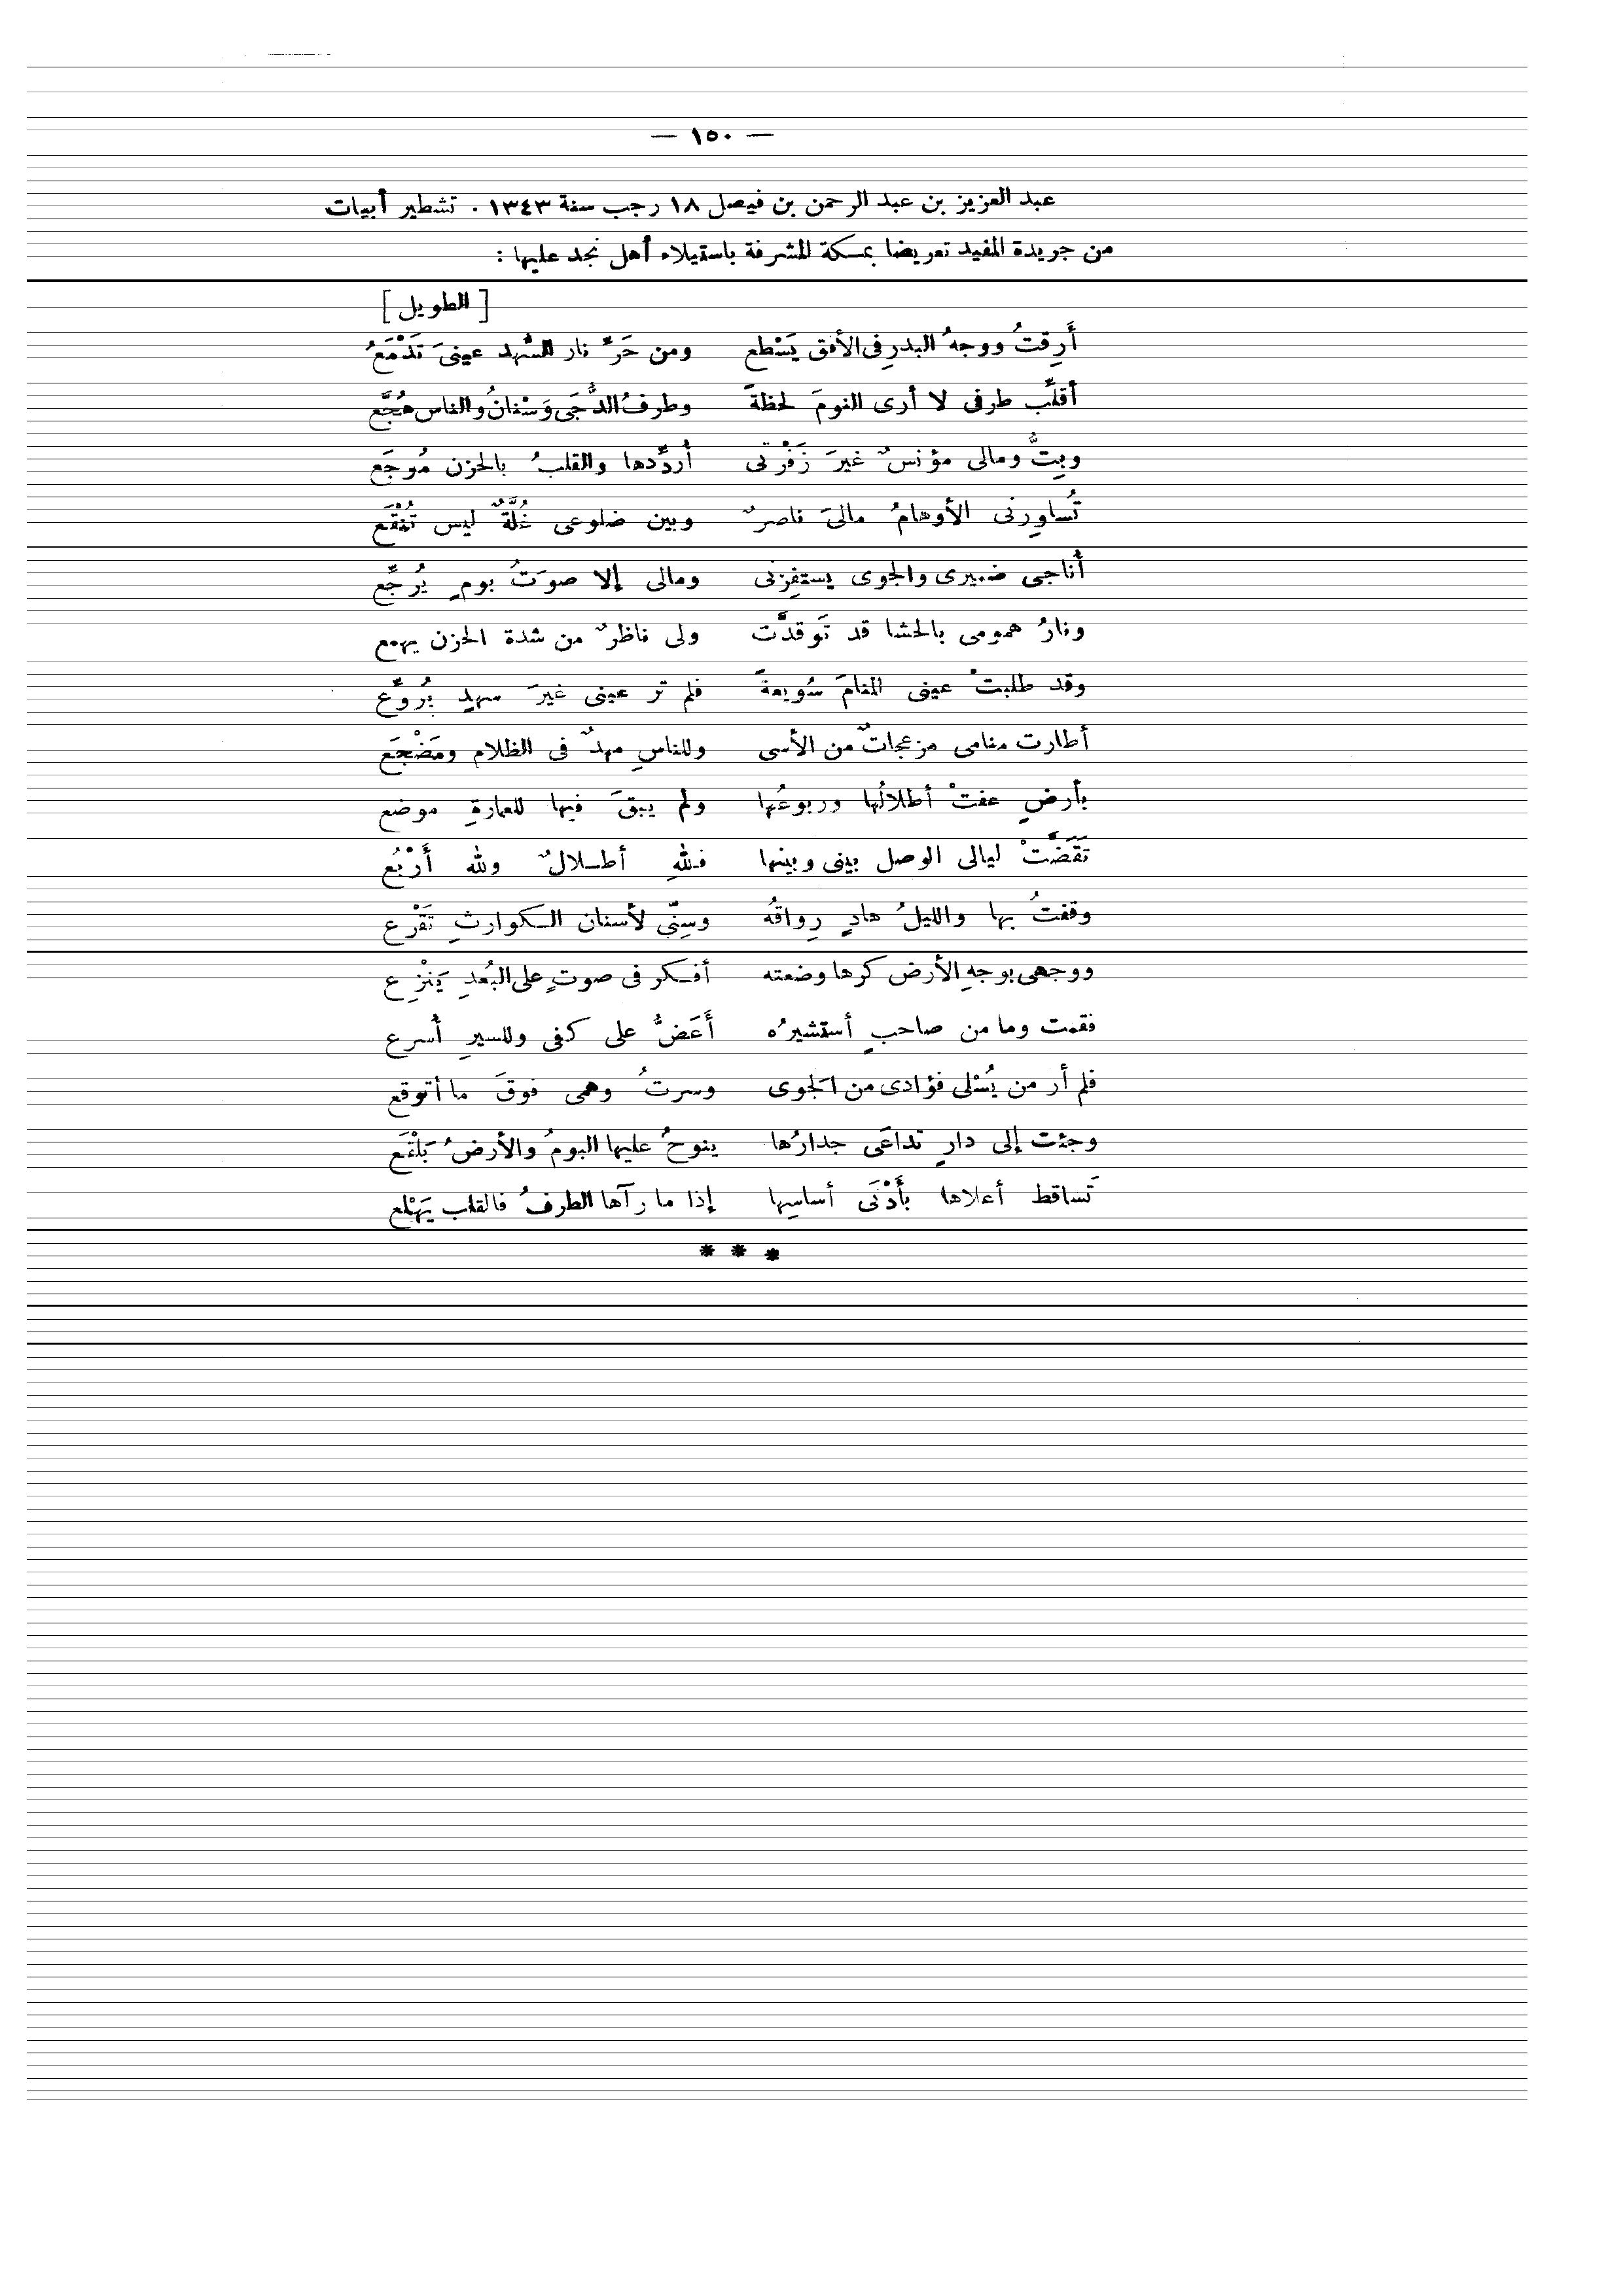 — ١٥٠ —
عبد العزيز بن عبد الرحمن بن فيصل ١٨ رجب سنة ١٣٤٣ . تشطير أبيات
من جريدة المفيد تعريضا بمكة المشرفة باستيلاء أهل نجد عليها :
[ الطويل ]
أَرِقتُ ووجهُ البدرِ فى الأفق يَسْطع ومن حَرِّ نار السُّهد عينىَ تَدْمَعُ
أقلِّب طرفى لا أرى النومَ لحظةً وطرفُ الدُّجَى وَسْنانُ والناس هُجَّع
وبِتُّ ومالى مؤنسٌ غيرَ زَفْرتى أردِّدها والقلبُ بالحزن مُوجَع
تُساوِرنى الأوهامُ مالىَ ناصرٌ وبين ضلوعى غُلَّةٌ ليس تُنْقَع
أناجى ضميرى والجوى يستفِزنى ومالى إلا صوتُ بومٍ يُرجِّع
ونارُ همومى بالحشا قد تَوقدَّت ولى ناظرٌ من شدة الحزن يهمع
وقد طلبتْ عينى المنامَ سُويعةً فلم تر عينى غيرَ سهدٍ يُروِّع
أطارت منامى مزعجاتٌ من الأسى وللناسِ مهدٌ فى الظلام ومَضْجَع
بأرضٍ عفتْ أطلالُها وربوعُها ولم يبقَ فيها للعمارةِ موضع
تَقَضَّتْ ليالى الوصل بينى وبينها فللهِ أطــلالٌ ولله أَرْبُع
وقفتُ بها والليلُ هادٍ رِواقُه وسِنِّى لأسنان الكوارثِ تَقْرع
ووجهى بوجهِ الأرض كرها وضعته أفكر فى صوتٍ على البُعدِ يَنْزِع
فقمت وما من صاحبٍ أستشيرُه أَعَضُّ على كفى وللسيرِ أُسرع
فلم أر من يُسْلى فؤادى من الجوى وسرتُ وهمى فوقَ ما أتوقع
وجئت إلى دارٍ تداعَى جدارُها ينوحُ عليها البومُ والأرضُ بَلْقَع
تَساقط أعلاها بأَدْنَى أساسِها إذا ما رآها الطرفُ فالقلب يَهْلع
* * *